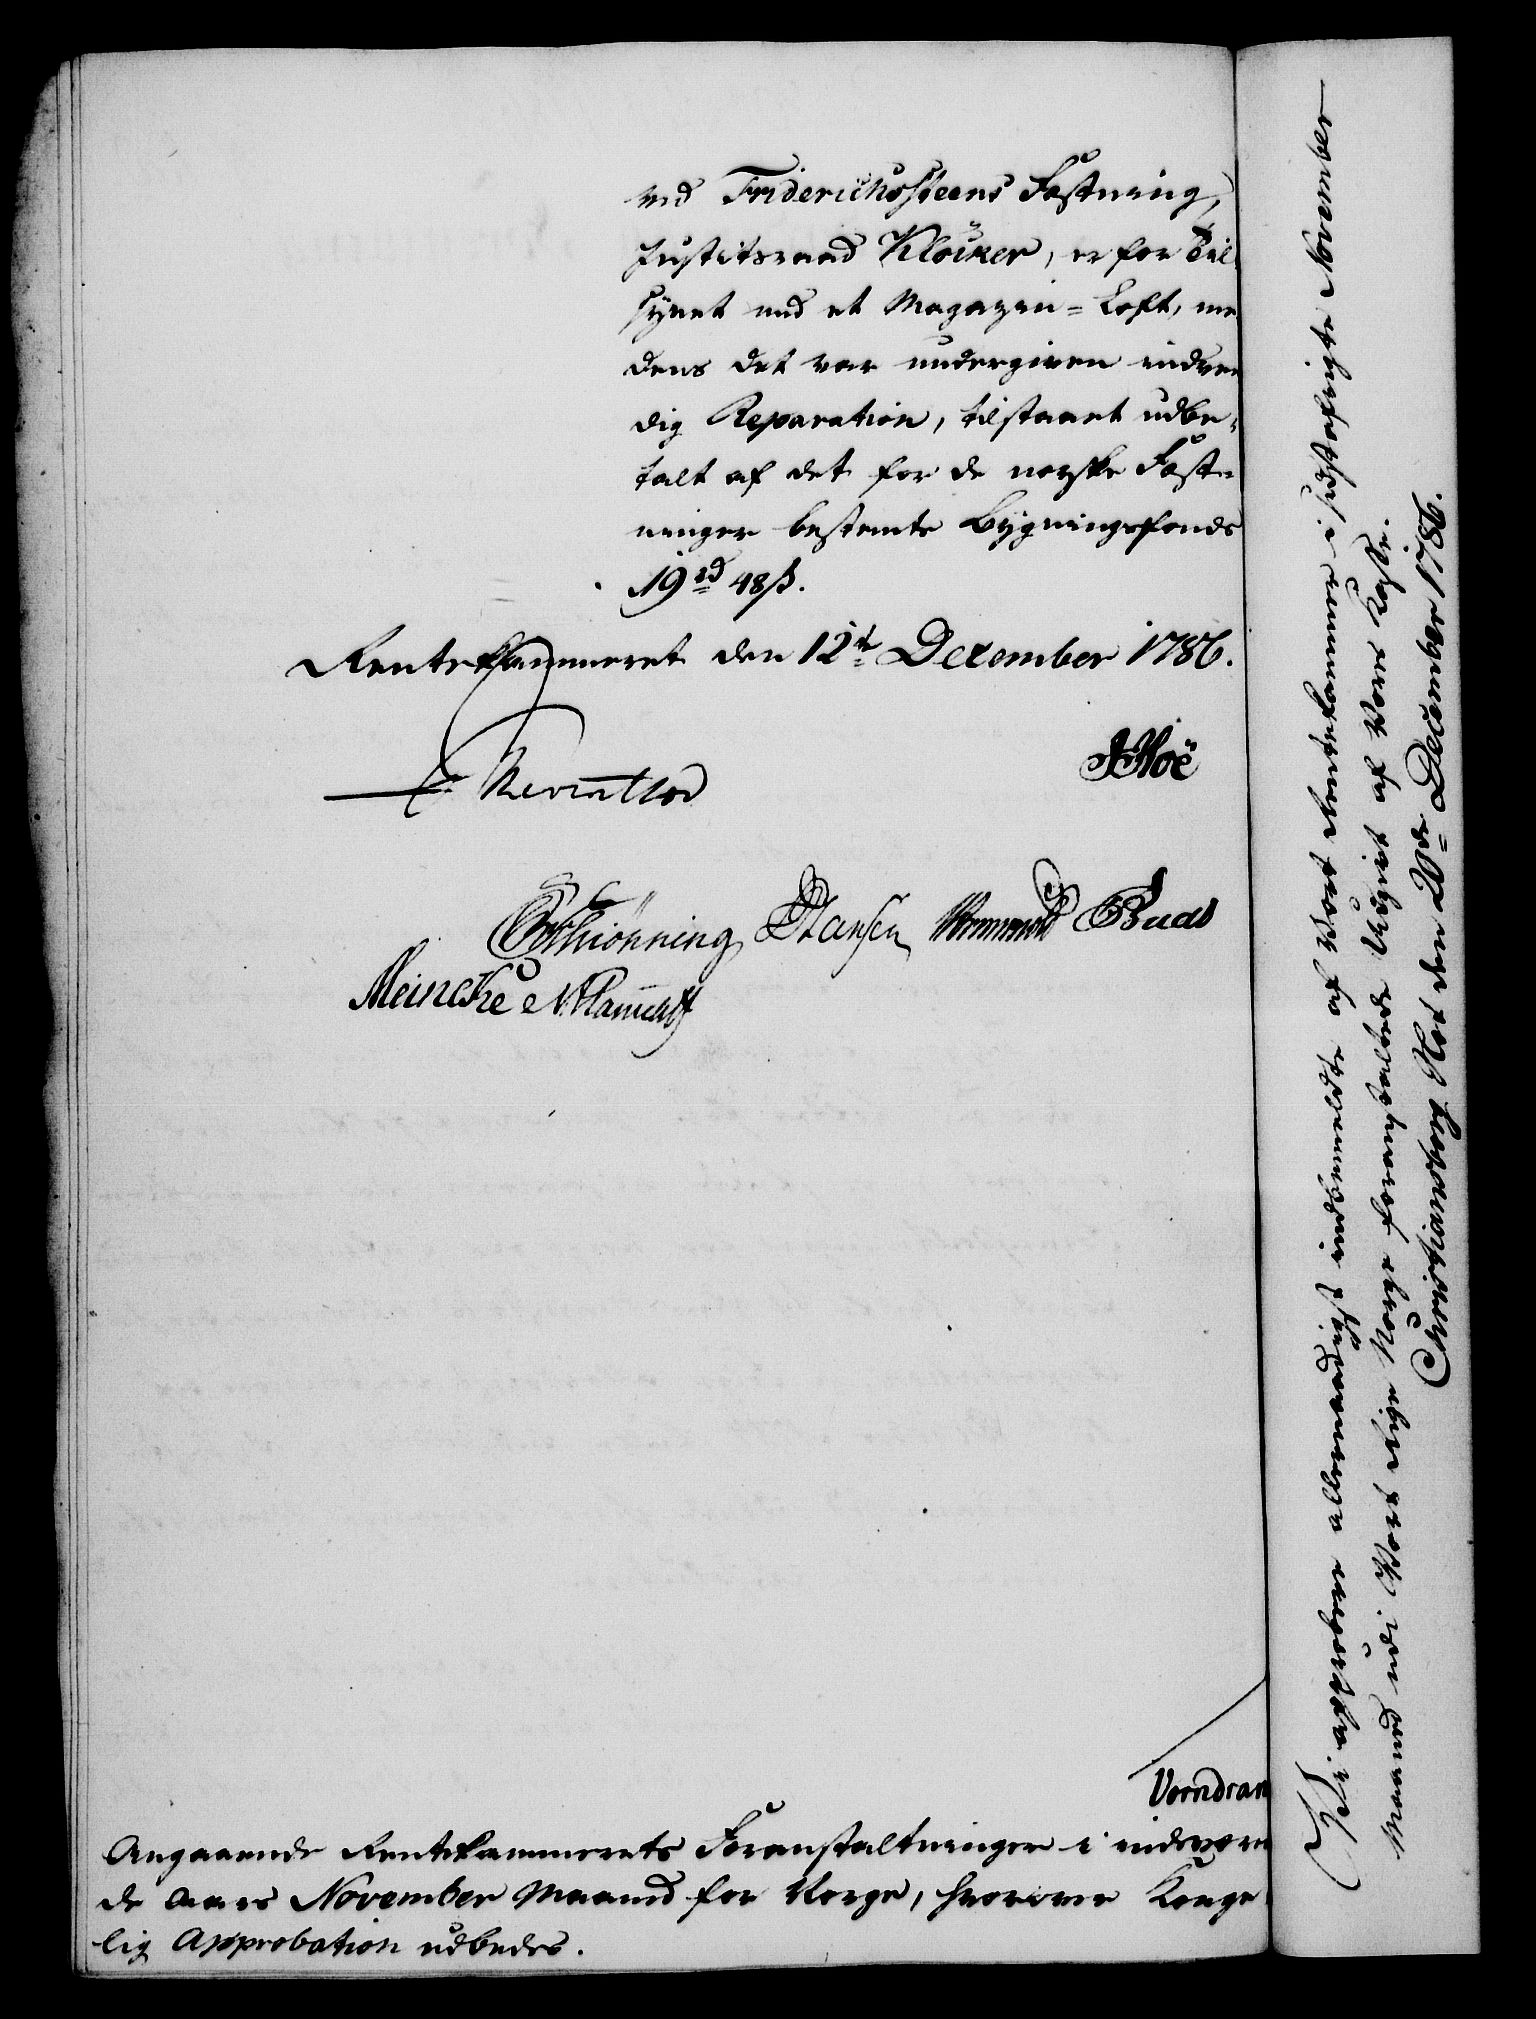 ved Friderichssteens Fæstning,
Justitsraad Klöcker, er for Til
synet med et Magazin=Loft, me
dens det var undergiven indven
dig Reparation, tilstaaet udbe-
talt af det for de norske Fæst-
ninger bestemte Bygningsfonds
19 rd 48 ß.
Rentekammeret den 12te December 1786.
Reventlow
Hoë
Schiönning Hansen Wormskiold
Meincke
Vorndran
Angaaende Rentekammerets Foranstaltninger i indeværen
de Aars November Maaned for Norge, hvorover Konge
lig Approbation udbedes.
Vi approbere allernaadigst indbemeldte af Vort Rentekammer i sidstafvigte November
Maaned udi Vort Rige Norge foranstaltede Udgivt af Vores Kasse.
Christiansborg Slot den 20de December 1786.